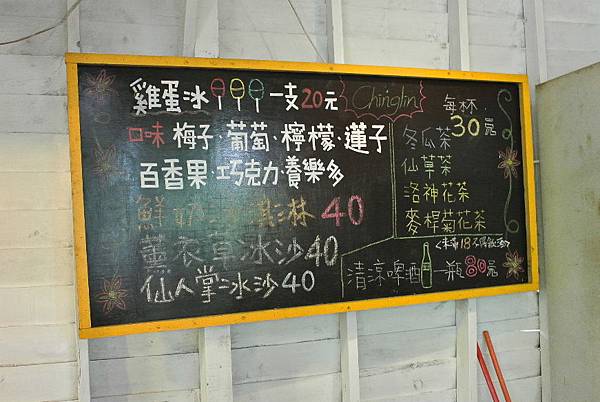 雞蛋冰 一支20元
口味 梅子、葡萄、檸檬、蓮子
百香果、巧克力、養樂多
鮮奶冰淇淋 40
薰衣草冰沙 40
仙人掌冰沙 40
Chinglin
每杯
30元
冬瓜茶
仙草茶
洛神花茶
麥桿菊花茶
清涼啤酒 一瓶80元